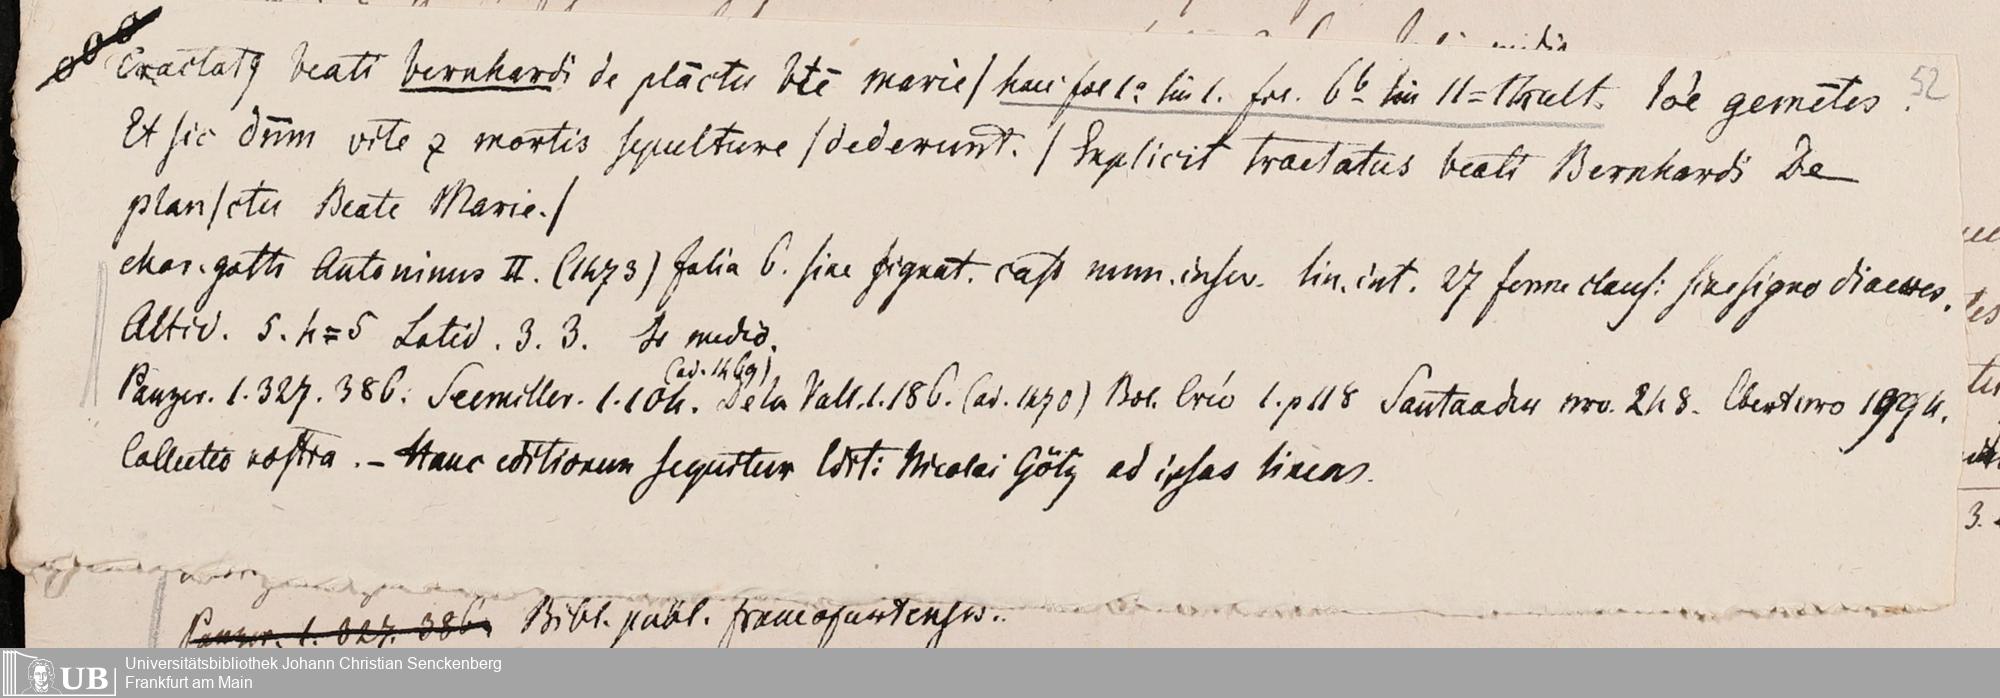 Tractatꝰ beati bernhardi de plāctu btē marie/ haec fol 1a lin 1. fol. 6b lin 11 = ult. lōe gemētes.
52
Et sic dnm̄ vite ⁊ mortis sepulture /dederunt./ Explicit tractatus beati Bernhardi De
plan/ctu Beate Marie./
char. goth Antoninus II. (1473) folia 6. sine signat. cust num. inscr. lin. int. 27 ferme clausis sine signo diaereses.
Altid. 5. 4=5 Latid. 3. 3. In medio.
(ad. 1469)
Panzer. 1. 327. 386. Seemiller. 1. 104. De la Vall. 1. 186. (ad. 1470) Bol. Cric 1. p 118 Santander nro. 248. Ebert nro 1994.
Collectio nostra. – Hanc editionem sequitur Edit: Nicolai Götz ad ipsas lineas.
Panzer. 1. 327. 386. Bibl. publ. francofurtensis.
UB Universitätsbibliothek Johann Christian Senckenberg
Frankfurt am Main